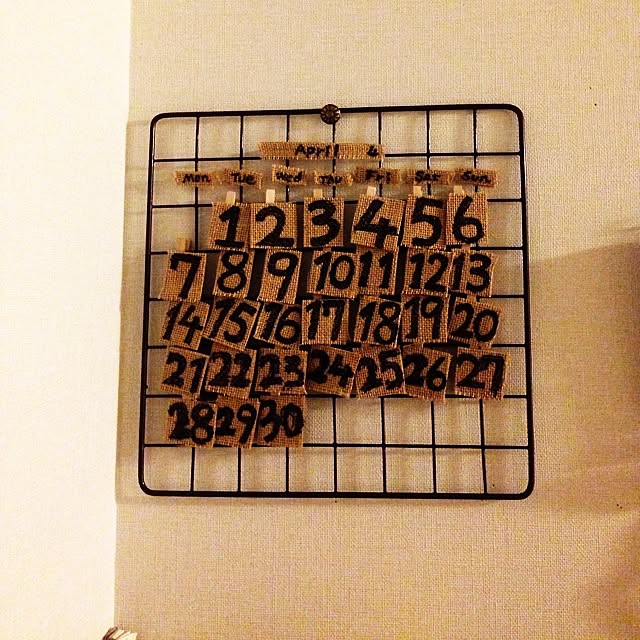 April 4
Mon Tue Wed Thu Fri Sat Sun
1 2 3 4 5 6
7 8 9 10 11 12 13
14 15 16 17 18 19 20
21 22 23 24 25 26 27
28 29 30